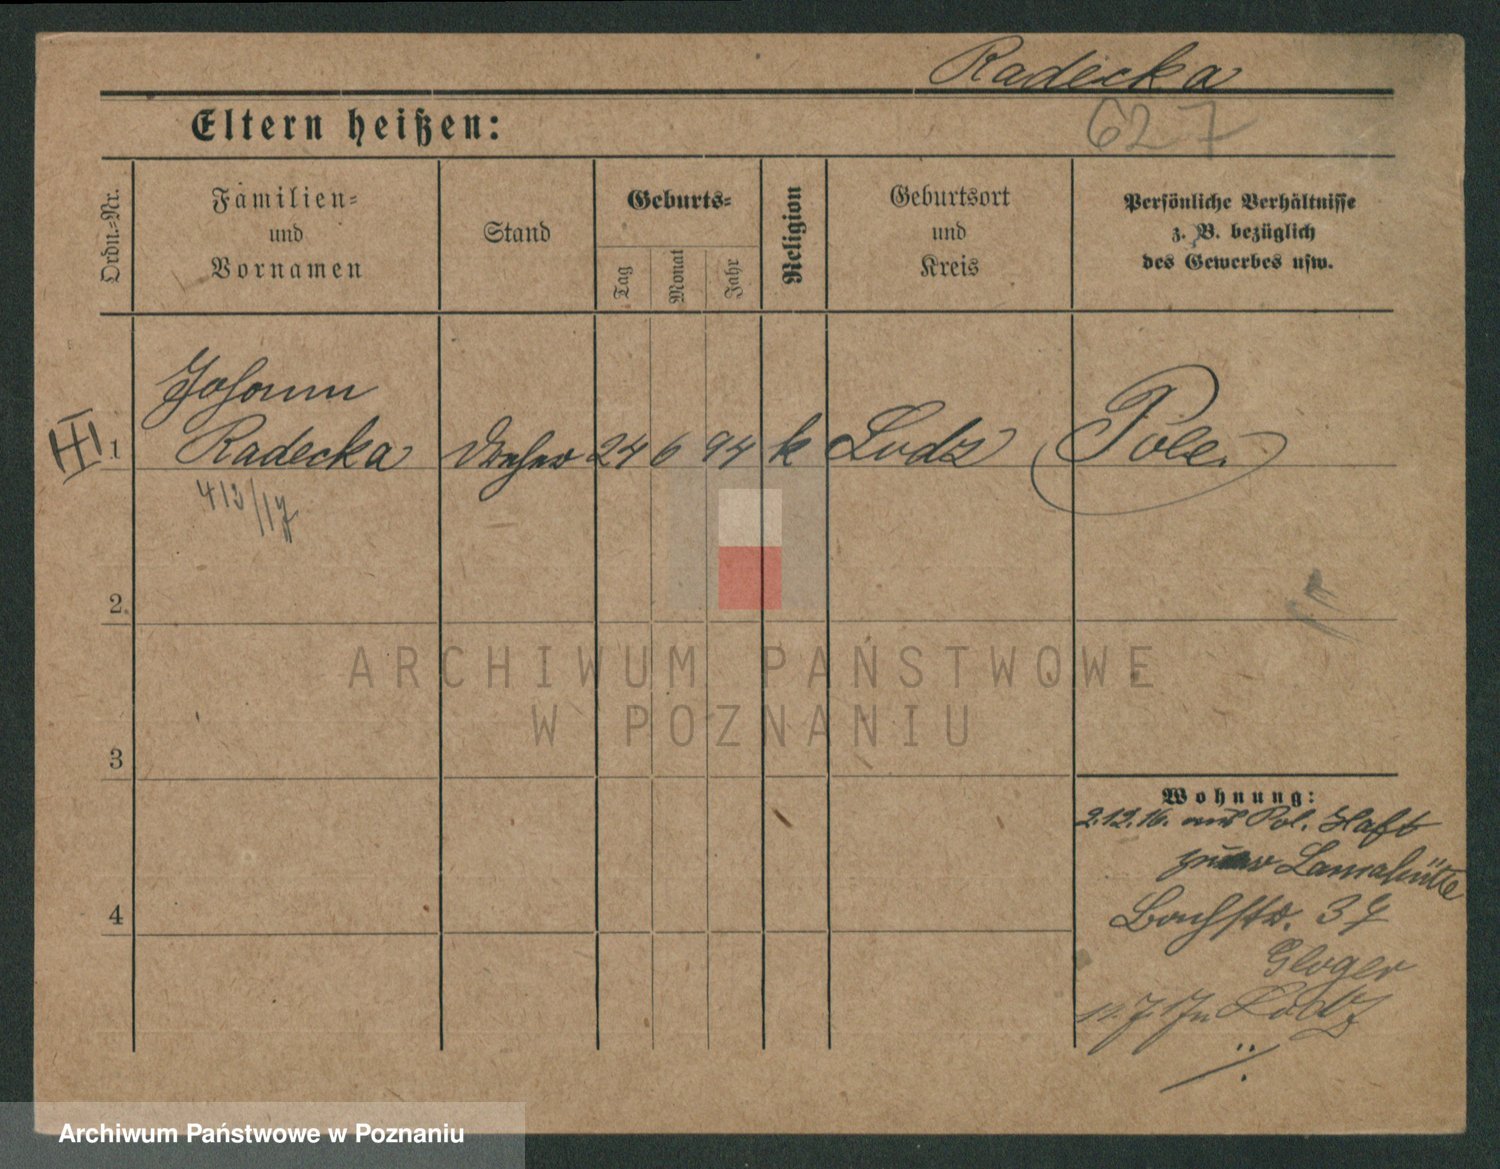 Radecka
627
Eltern heißen:
Ordn.-Nr.
Familien-
und
Vornamen
Stand
Geburts-
Tag
Monat
Jahr
Religion
Geburtsort
und
Kreis
Persönliche Verhältnisse
z. B. bezüglich
des Gewerbes usw.
Johann
III 1 Radecka Dreher 24 6 94 k Lodz Pole
413/17
2
3
4
ARCHIWUM PAŃSTWOWE
W POZNANIU
Wohnung:
2.12.16. aus Pol. Haft
Laurahütte
Bachstr. 37
Gloger
7. 17 n Lodz
Archiwum Państwowe w Poznaniu